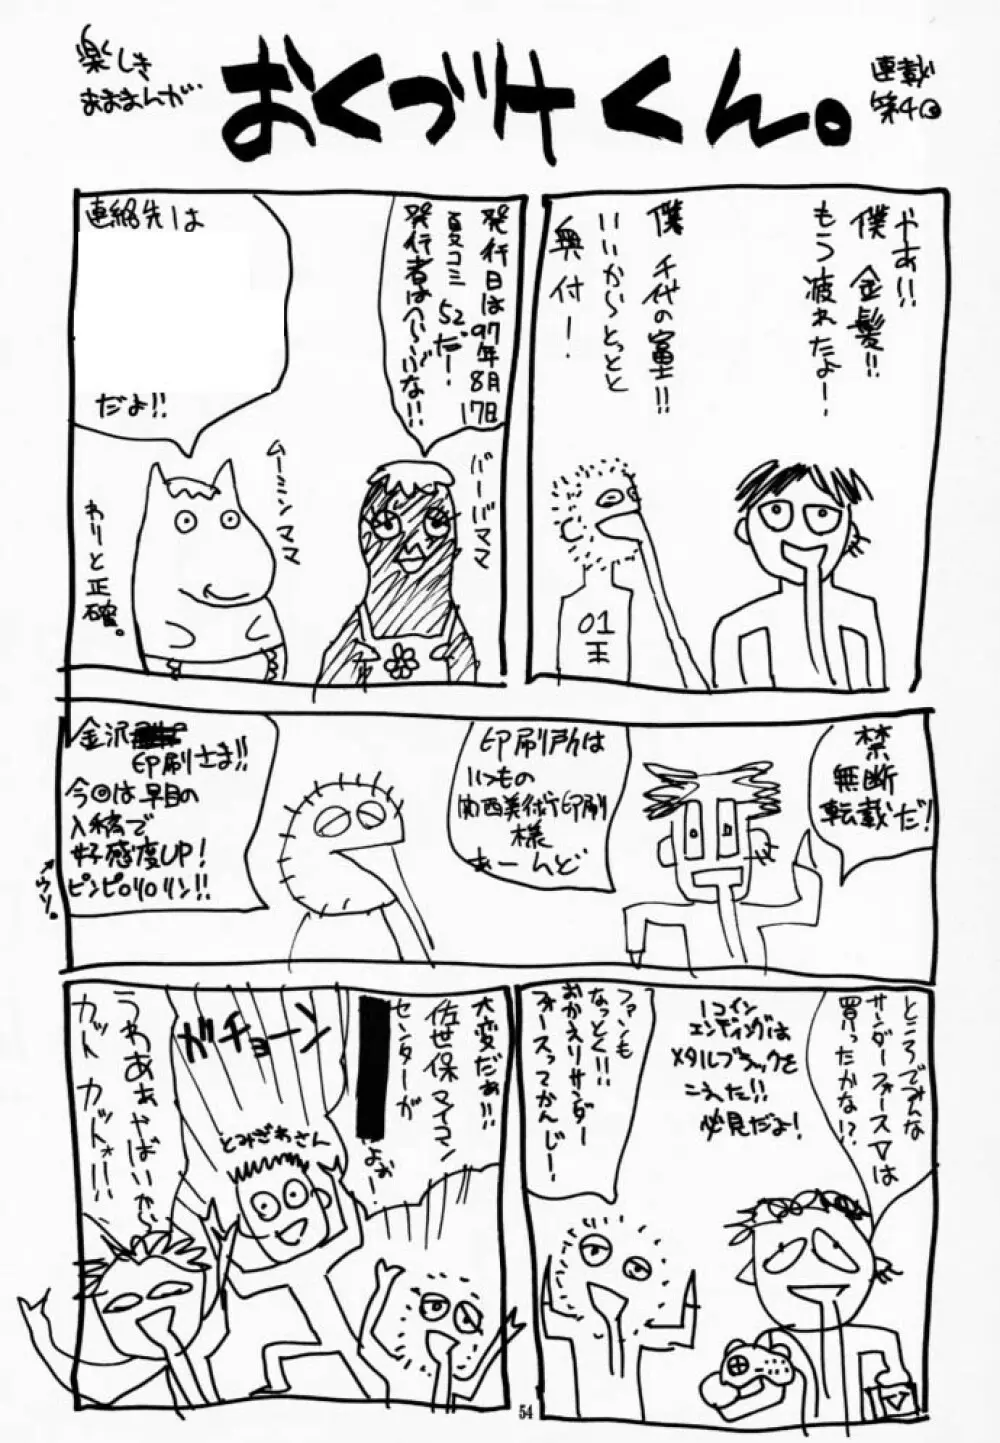 楽しき
おまけまんが
おくづけくん。
連載
第4回
やあ!!
僕 金髪!!
もう疲れたよー
僕 千代の富士!!
いいからとっとと
奥付!
01
王
発行日は97年8月17日
夏コミ 52だー!
発行者はへらいぶな!!
バーバママ
連絡先は
だよ!!
ムーミンママ
わりと正確。
禁
無断
転載だ!
印刷所は
いつもの
関西美術印刷
様
あーんど
金沢
印刷さま!!
今回は早目の
入稿で
好感度UP!
ピンピロリロリン!!
ウソ。
ところでみんな
サンダーフォースVは
買ったかな!?
1コイン
エンディングは
メタルブラックを
こえた!!
必見だよ!
ファンも
なっとく!!
おかえりサンダー
フォースってかんじ!
大変だぁ!!
佐世保マイコン
センターが
よぉー!
ガチョーン
とみざわさん
うわぁぁやばいが
カット カットォ!!
54